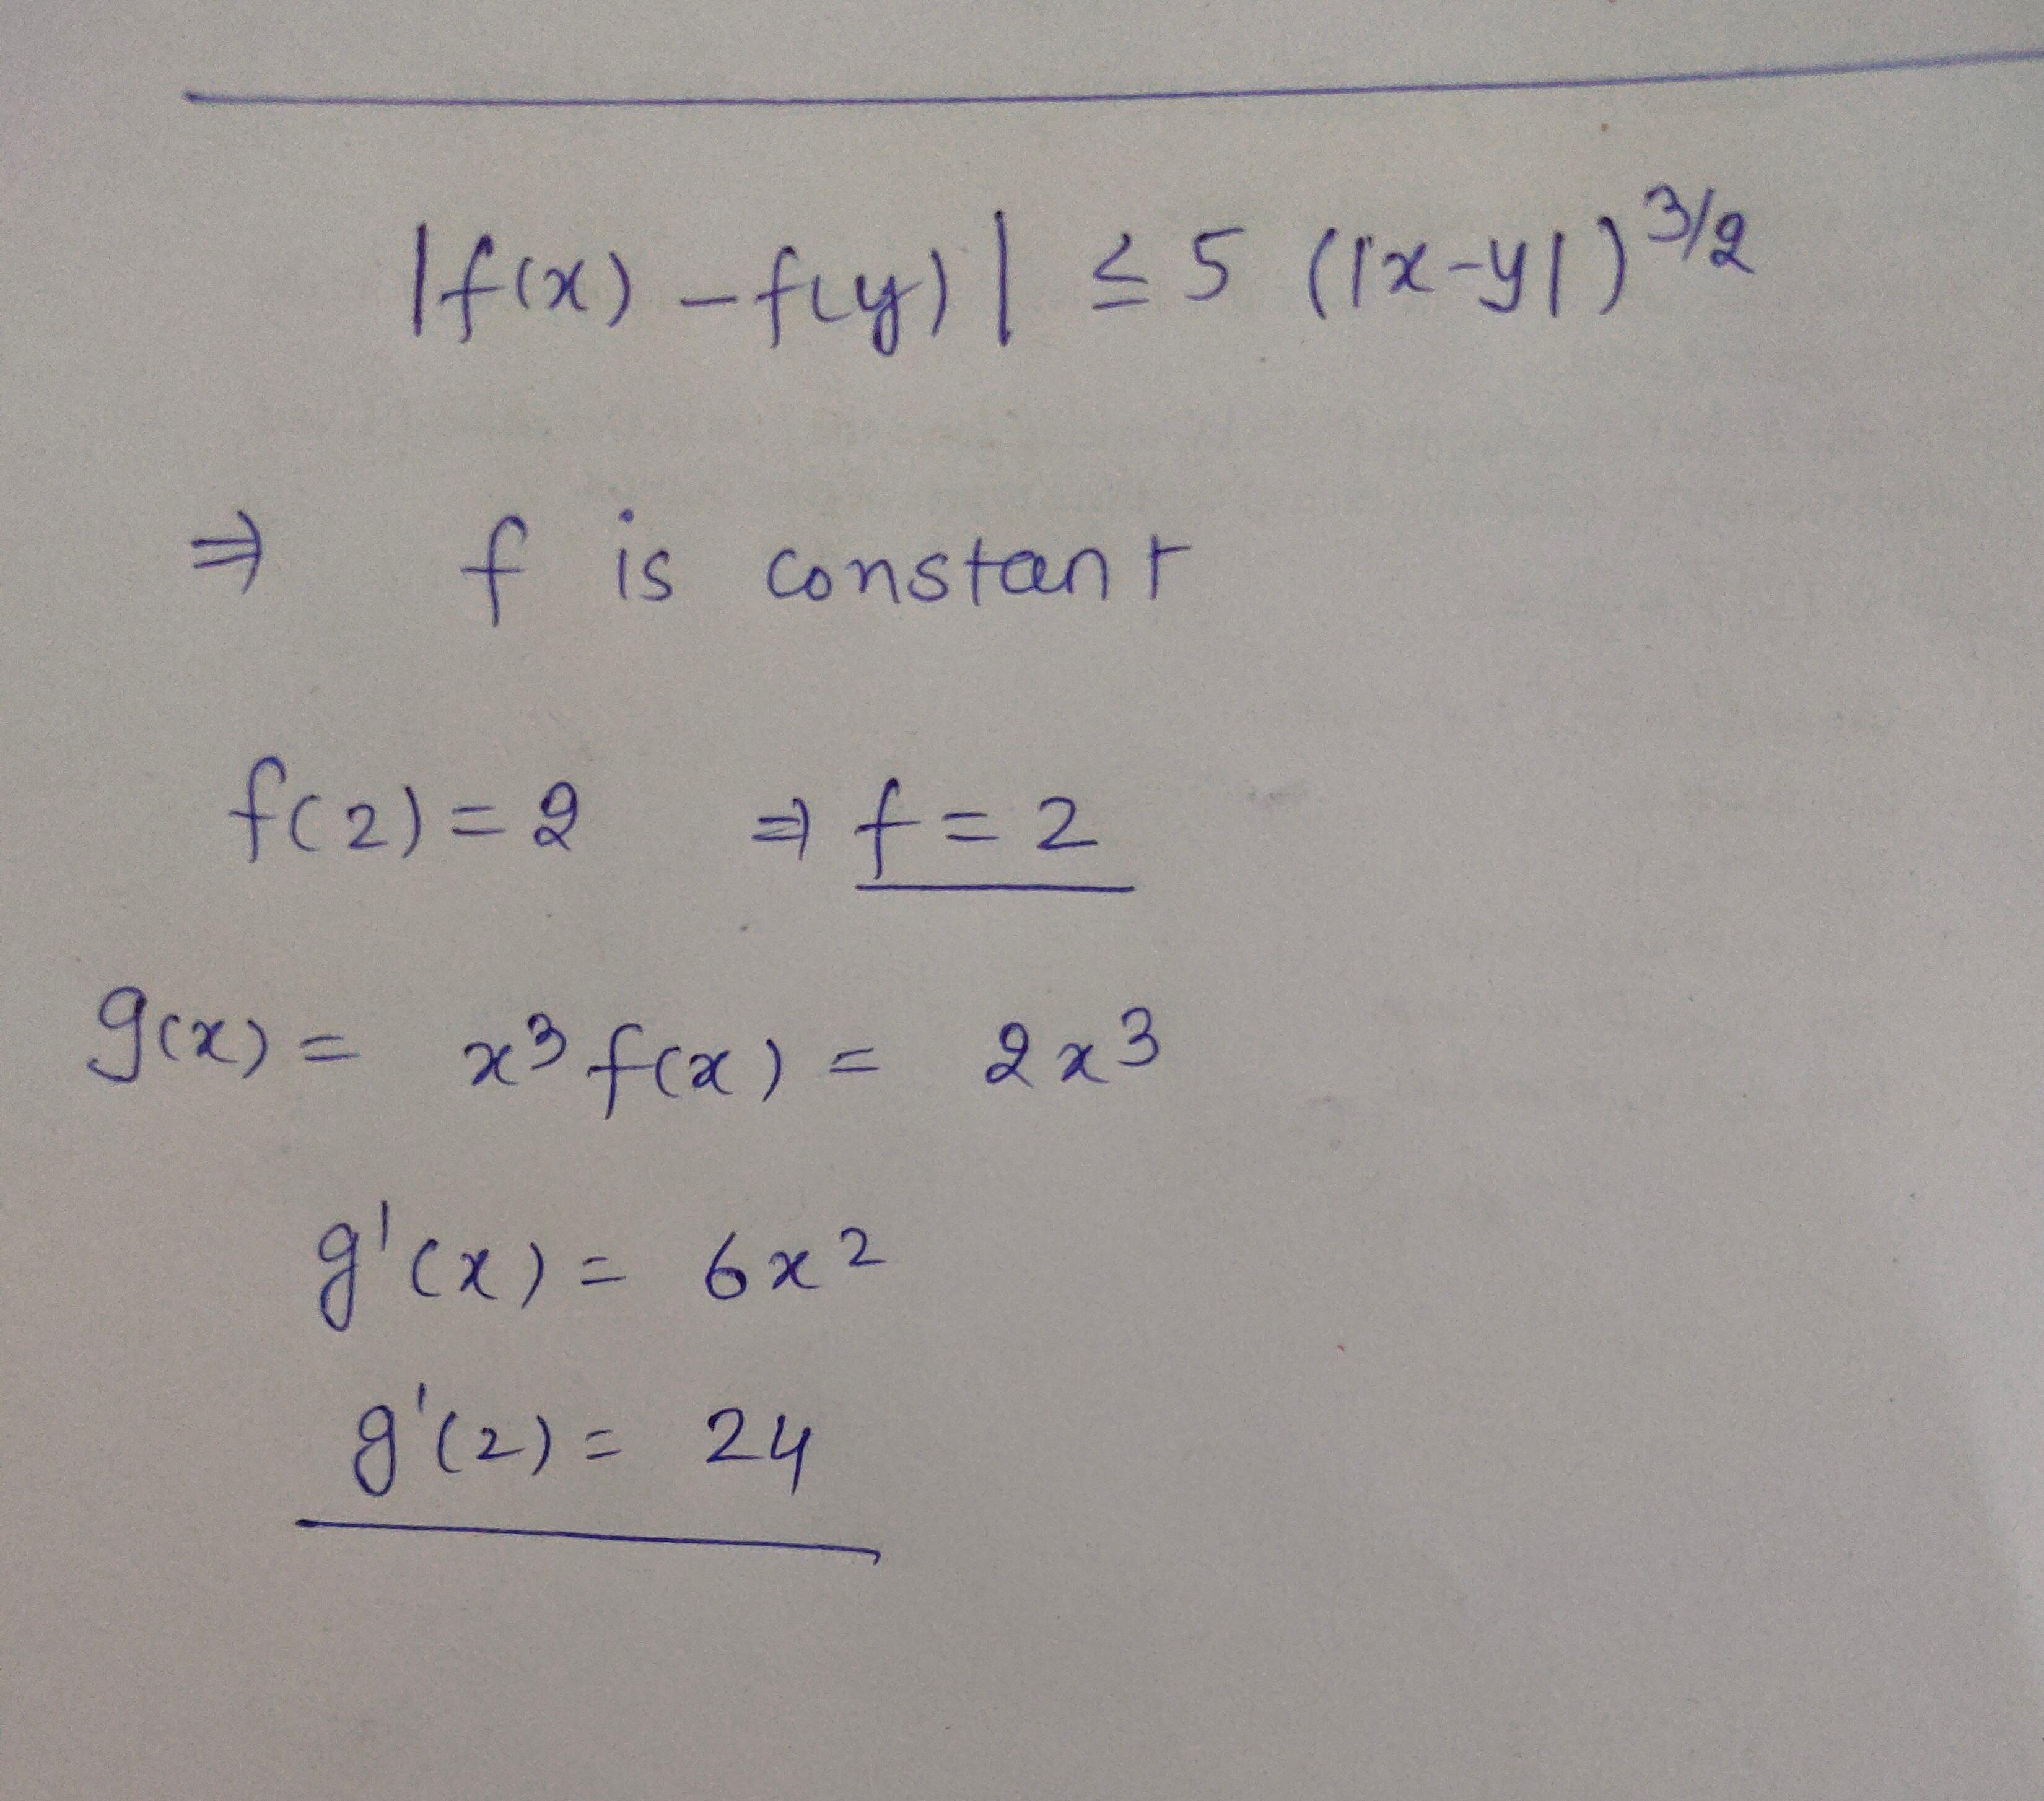 |f(x) - f(y)| ≤ 5 (|x-y|)^3/2
⇒ f is constant
f(2) = 2 ⇒ f = 2
g(x) = x³ f(x) = 2x³
g'(x) = 6x²
g'(2) = 24